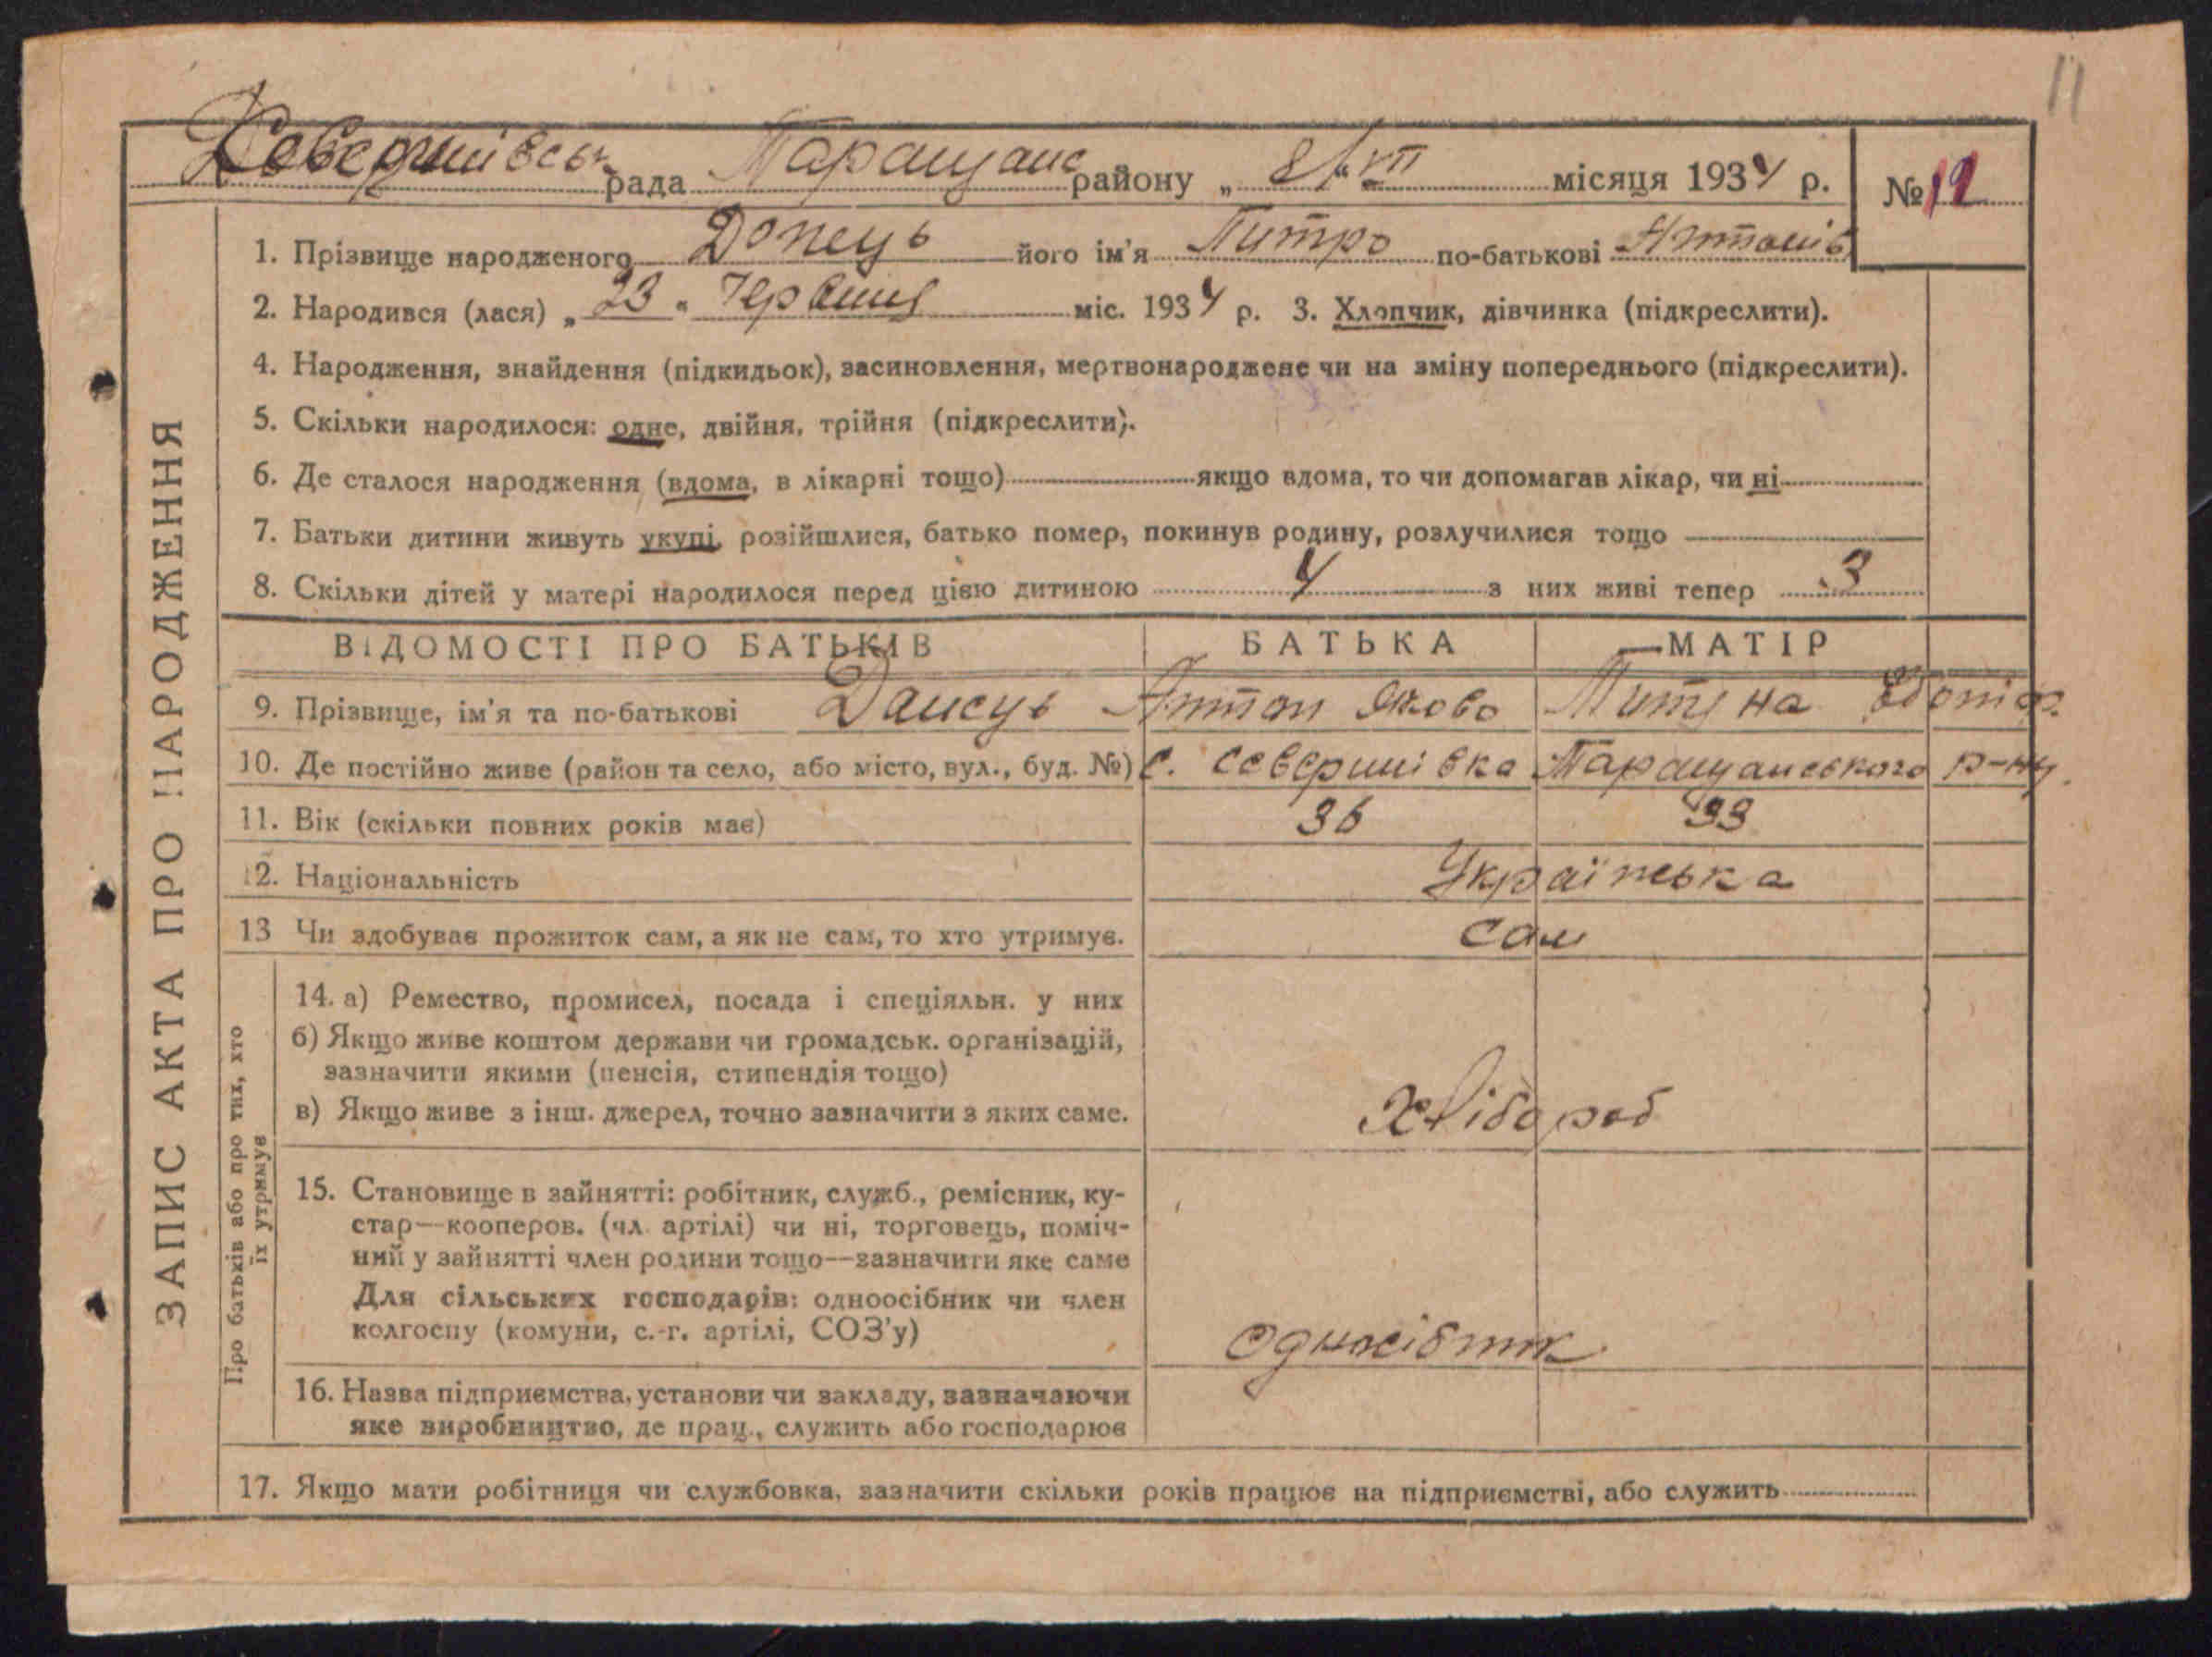 11
рада Таращанс району „ 21 " VII місяця 1934 р. № 12
1. Прізвище народженого Донець його ім'я Питро по-батькові Антонів
2. Народився (лася) „ 23 " Червиня міс. 1934 р. 3. Хлопчик, дівчинка (підкреслити).
4. Народження, знайдення (підкидьок), засиновлення, мертвонароджене чи на зміну попереднього (підкреслити).
5. Скільки народилося: одне, двійня, трійня (підкреслити).
6. Де сталося народження (вдома, в лікарні тощо) якщо вдома, то чи допомагав лікар, чи ні
7. Батьки дитини живуть укупі, розійшлися, батько помер, покинув родину, розлучилися тощо
8. Скільки дітей у матері народилося перед цією дитиною 4 з них живі тепер 3
ВІДОМОСТІ ПРО БАТЬКІВ БАТЬКА МАТІР
9. Прізвище, ім'я та по-батькові Данець Антон Яково
10. Де постійно живе (район та село, або місто, вул., буд. №) с. Северинівка Таращанського р-ну.
11. Вік (скільки повних років має) 36 33
12. Національність Українська
13 Чи здобуває прожиток сам, а як не сам, то хто утримує. сам
14. а) Ремество, промисел, посада і спеціяльн. у них
б) Якщо живе коштом держави чи громадськ. організацій,
зазначити якими (пенсія, стипендія тощо)
в) Якщо живе з інш. джерел, точно зазначити з яких саме. Хлібороб
15. Становище в зайнятті: робітник, служб., ремісник, ку-
стар—кооперов. (чл. артілі) чи ні, торговець, поміч-
ний у зайнятті член родини тощо—зазначити яке саме
Для сільських господарів: одноосібник чи член
колгоспу (комуни, с.-г. артілі, СОЗ'у) односібник
16. Назва підприємства, установи чи закладу, зазначаючи
яке виробництво, де прац., служить або господарює
17. Якщо мати робітниця чи службовка, зазначити скільки років працює на підприємстві, або служить
ЗАПИС АКТА ПРО НАРОДЖЕННЯ
Про батьків або про тих, хто
їх утримує